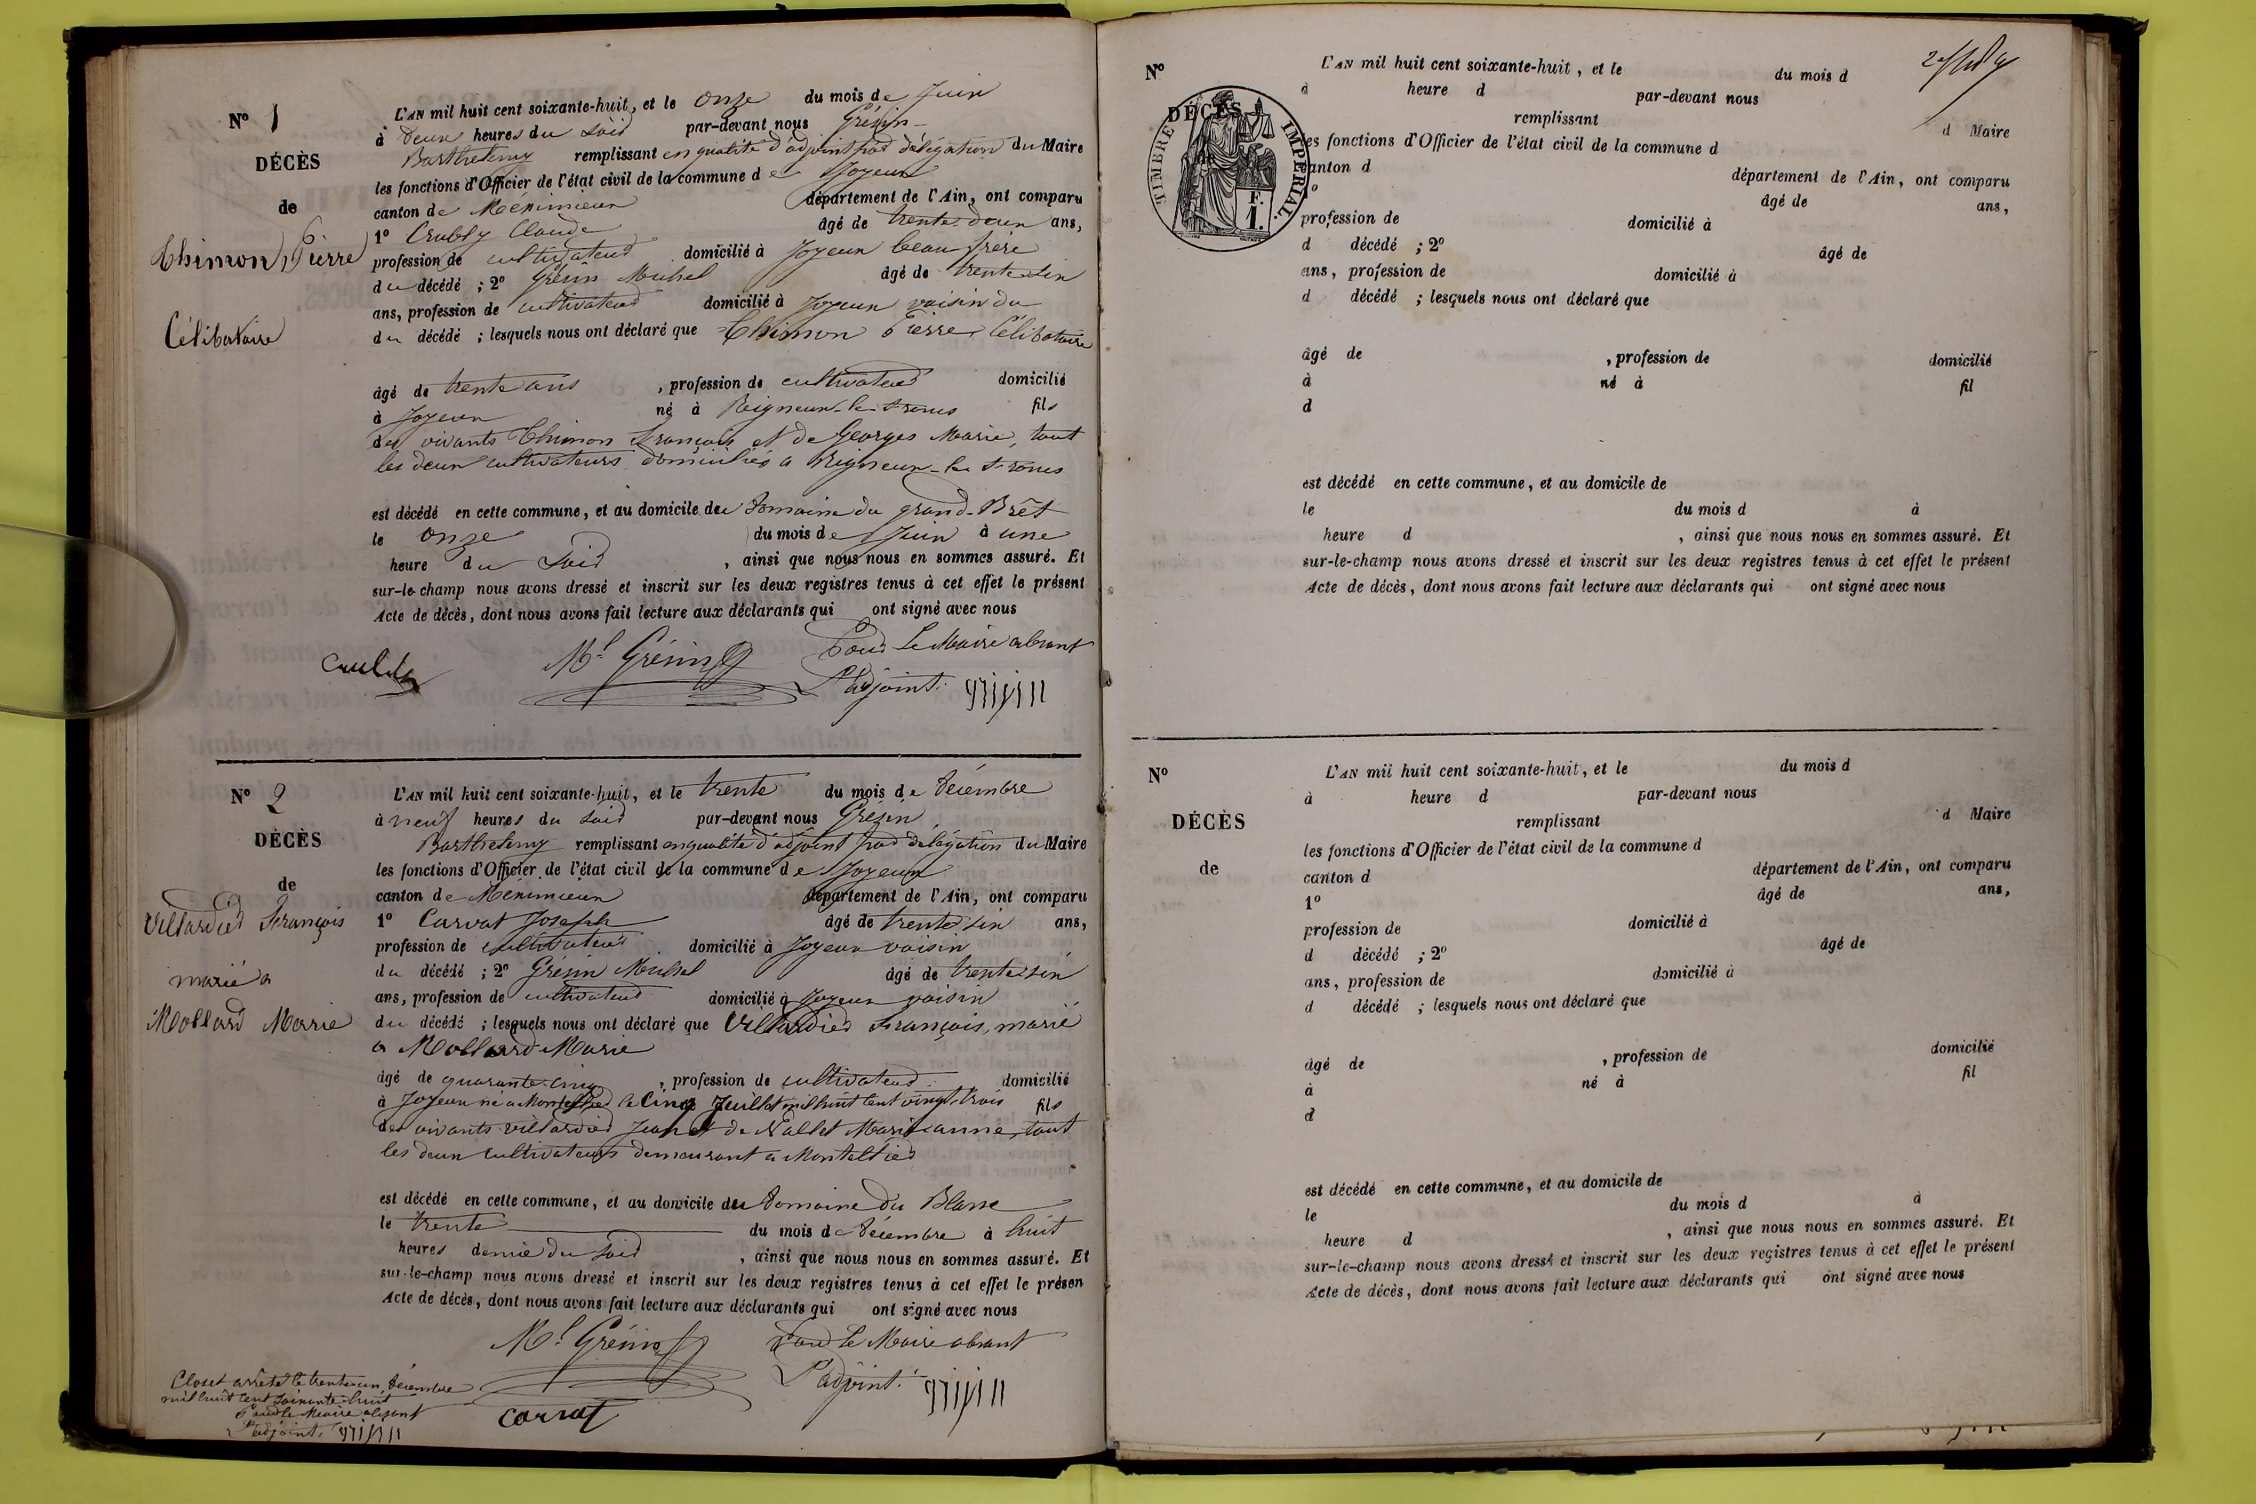 N° 1
DÉCÈS
de
Thimon, Pierre
Célibataire
L'AN mil huit cent soixante-huit, et le onze du mois de Juin
à deux heures du soir par-devant nous Grésin
Barthelemy remplissant en qualité d'adjoint par délégation du Maire
les fonctions d'Officier de l'état civil de la commune de Joyeux
canton de Meximieux département de l'Ain, ont comparu
1° Claude âgé de trente deux ans,
profession de cultivateur domicilié à Joyeux beau frère
du décédé ; 2° Grésin Michel âgé de trente six
ans, profession de cultivateur domicilié à Joyeux voisin du
du décédé ; lesquels nous ont déclaré que Thimon Pierre, Célibataire
âgé de trente ans , profession de cultivateur domicilié
à Joyeux né à Rigneux-le-franc fils
des vivants Thimon François et de Georges Marie, tout
les deux cultivateurs domiciliés a Rigneux-le-franc
est décédé en cette commune, et au domicile du Domaine du grand-Brêt
le onze du mois de Juin à une
heure du soir , ainsi que nous nous en sommes assuré. Et
sur-le-champ nous avons dressé et inscrit sur les deux registres tenus à cet effet le présent
Acte de décès, dont nous avons fait lecture aux déclarants qui ont signé avec nous
Pour Le Maire absent
Ml Grésin
L'adjoint.
N° 2
DÉCÈS
de
Villardier François
marié a
Mollard Marie
L'AN mil huit cent soixante-huit, et le trente du mois de Décembre
à neuf heures du soir par-devant nous Grésin
Barthelemy remplissant en qualité d'adjoint par délégation du Maire
les fonctions d'Officier de l'état civil de la commune de Joyeux
canton de Meximieux département de l'Ain, ont comparu
1° Carvat Joseph âgé de trente six ans,
profession de cultivateur domicilié à Joyeux voisin
du décédé ; 2° Grésin Michel âgé de trente six
ans, profession de cultivateur domicilié à Joyeux voisin
du décédé ; lesquels nous ont déclaré que Villardier François, marié
a Mollard Marie
âgé de quarante-cinq , profession de cultivateur domicilié
à Joyeux né a Montellier le Cinq Juillet mil huit cent vingt-trois fils
des vivants Villardier Jean et de Marieanne, tout
les deux cultivateurs demeurant a Montellier
est décédé en cette commune, et au domicile du Domaine du Blanc
le trente du mois de Décembre à huit
heures demie du soir , ainsi que nous nous en sommes assuré. Et
sur-le-champ nous avons dressé et inscrit sur les deux registres tenus à cet effet le présen
Acte de décès, dont nous avons fait lecture aux déclarants qui ont signé avec nous
Ml Grésin Pour Le Maire absent
L'adjoint.
Carvat
Clos et arrêté le trente un Décembre
mil huit cent soixante-huit
Pour le Maire absent
L'adjoint.
N°
DÉCÈS
de
TIMBRE IMPÉRIAL.
F.
1.
L'AN mil huit cent soixante-huit, et le du mois d
à heure d par-devant nous
remplissant d Maire
les fonctions d'Officier de l'état civil de la commune d
canton d département de l'Ain, ont comparu
1° âgé de ans,
profession de domicilié à
d décédé ; 2° âgé de
ans, profession de domicilié à
d décédé ; lesquels nous ont déclaré que
âgé de , profession de domicilié
à né à fil
d
est décédé en cette commune, et au domicile de
le du mois d à
heure d , ainsi que nous nous en sommes assuré. Et
sur-le-champ nous avons dressé et inscrit sur les deux registres tenus à cet effet le présent
Acte de décès, dont nous avons fait lecture aux déclarants qui ont signé avec nous
N°
DÉCÈS
de
L'AN mil huit cent soixante-huit, et le du mois d
à heure d par-devant nous
remplissant d Maire
les fonctions d'Officier de l'état civil de la commune d
canton d département de l'Ain, ont comparu
1° âgé de ans,
profession de domicilié à
d décédé ; 2° âgé de
ans, profession de domicilié à
d décédé ; lesquels nous ont déclaré que
âgé de , profession de domicilié
à né à fil
d
est décédé en cette commune, et au domicile de
le du mois d à
heure d , ainsi que nous nous en sommes assuré. Et
sur-le-champ nous avons dressé et inscrit sur les deux registres tenus à cet effet le présent
Acte de décès, dont nous avons fait lecture aux déclarants qui ont signé avec nous